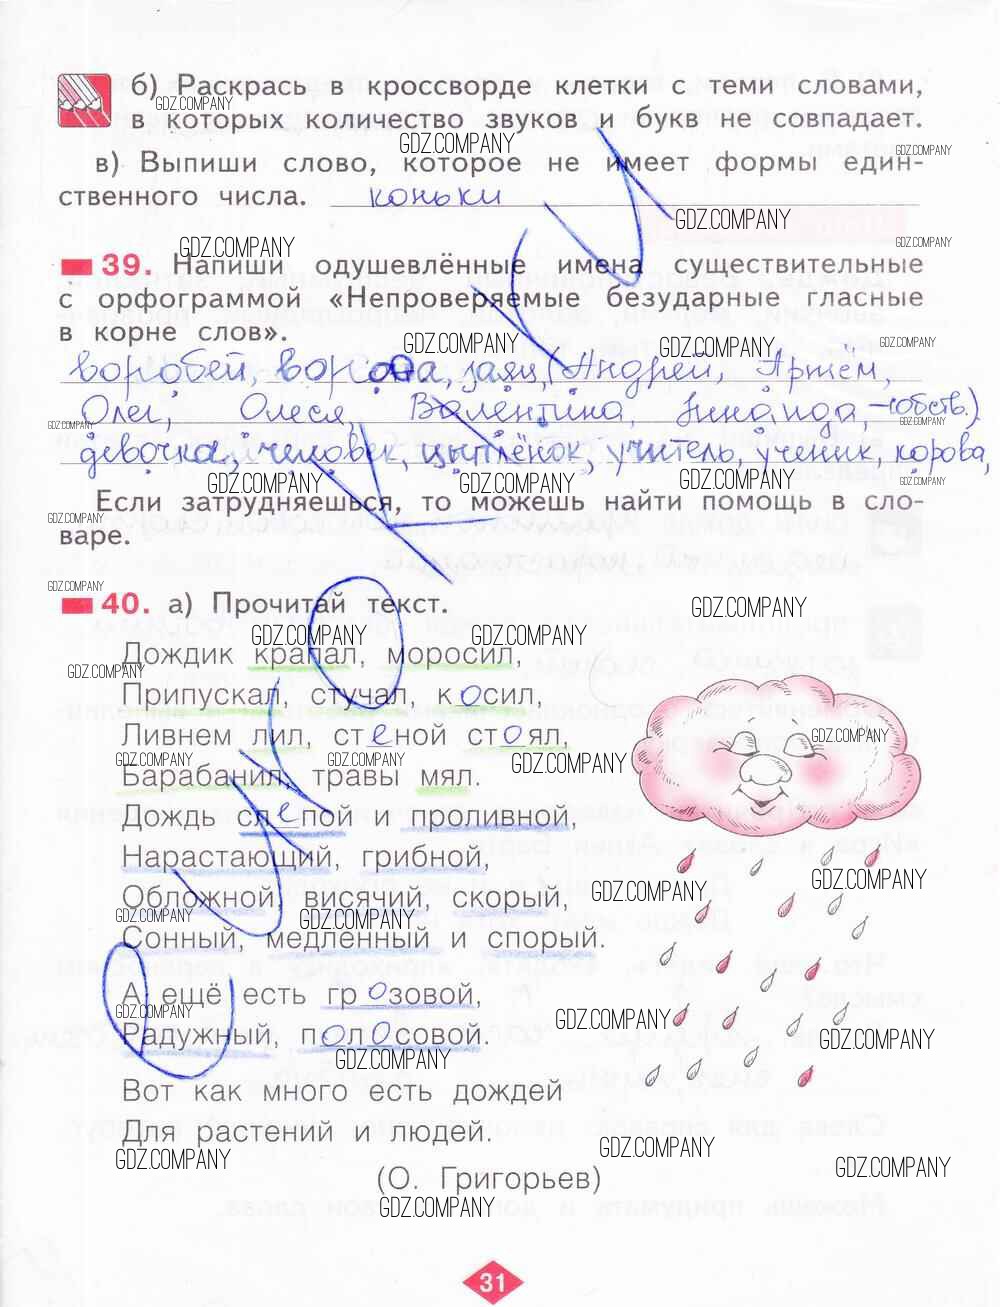 б) Раскрась в кроссворде клетки с теми словами,
в которых количество звуков и букв не совпадает.
в) Выпиши слово, которое не имеет формы един-
ственного числа. коньки
39. Напиши одушевлённые имена существительные
с орфограммой «Непроверяемые безударные гласные
в корне слов».
воробей, ворона, заяц, (Андрей, Артём,
Олег, Олеся, Валентина, Зинаида, - собств.)
девочка, человек, цыплёнок, учитель, ученик, корова,
Если затрудняешься, то можешь найти помощь в сло-
варе.
40. а) Прочитай текст.
Дождик крапал, моросил,
Припускал, стучал, косил,
Ливнем лил, стеной стоял,
Барабанил, травы мял.
Дождь слепой и проливной,
Нарастающий, грибной,
Обложной, висячий, скорый,
Сонный, медленный и спорый.
А ещё есть грозовой,
Радужный, полосовой.
Вот как много есть дождей
Для растений и людей.
(О. Григорьев)
31
GDZ.COMPANY